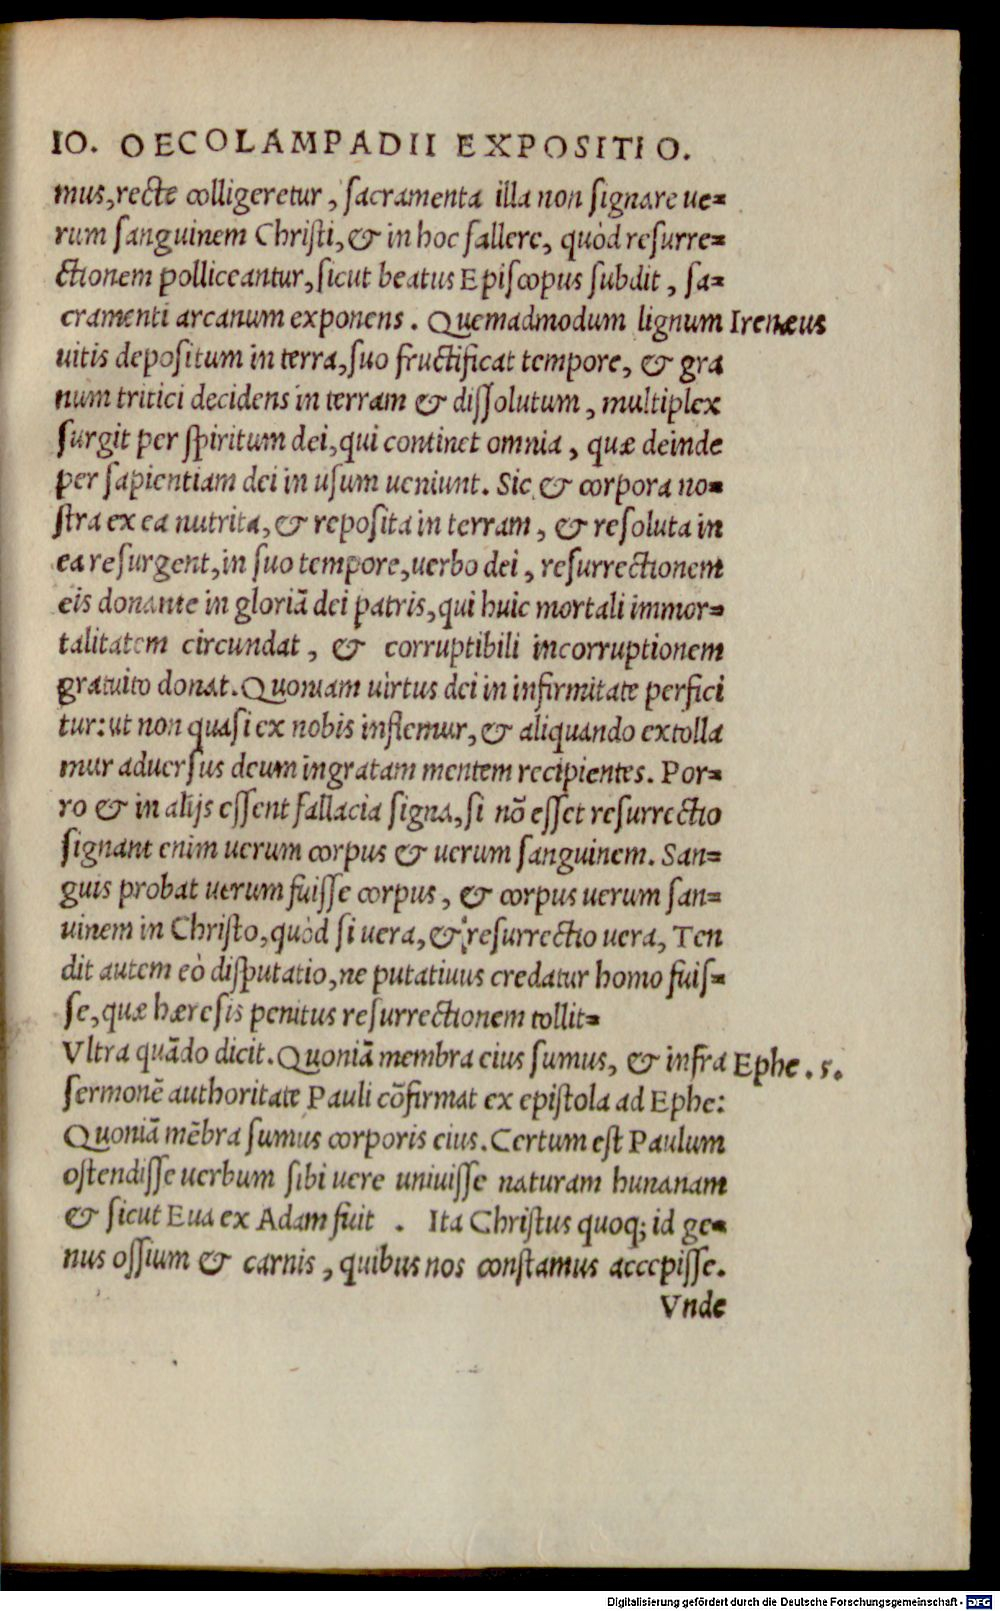 IO. OECOLAMPADII EXPOSITIO.
mus, recte colligeretur, sacramenta illa non signare ue=
rum sanguinem Christi, & in hoc fallere, quòd resurre=
ctionem polliceantur, sicut beatus Episcopus subdit, sa=
cramenti arcanum exponens. Quemadmodum lignum Irenæus
uitis depositum in terra, suo fructificat tempore, & gra
num tritici decidens in terram & dissolutum, multiplex
surgit per spiritum dei, qui continet omnia, quæ deinde
per sapientiam dei in usum ueniunt. Sic & corpora no=
stra ex ea nutrita, & reposita in terram, & resoluta in
ea resurgent, in suo tempore, uerbo dei, resurrectionem
eis donante in gloriã dei patris, qui huic mortali immor=
talitatem circundat, & corruptibili incorruptionem
gratuito donat. Quoniam uirtus dei in infirmitate perfici
tur: ut non quasi ex nobis inflemur, & aliquando extolla
mur aduersus deum ingratam mentem recipientes. Por=
ro & in alijs essent fallacia signa, si nõ esset resurrectio
signant enim uerum corpus & uerum sanguinem. San=
guis probat uerum fuisse corpus, & corpus uerum san=
uinem in Christo, quòd si uera, & resurrectio uera, Ten
dit autem eò disputatio, ne putatiuus credatur homo fuis=
se, quæ hæresis penitus resurrectionem tollit=
Vltra quãdo dicit. Quoniã membra eius sumus, & infra Ephe. 5.
sermonẽ authoritate Pauli cõfirmat ex epistola ad Ephe:
Quoniã mẽbra sumus corporis eius. Certum est Paulum
ostendisse uerbum sibi uere uniuisse naturam hunanam
& sicut Eua ex Adam fuit . Ita Christus quoq; id ge=
nus ossium & carnis, quibus nos constamus accepisse.
Vnde
Digitalisierung gefördert durch die Deutsche Forschungsgemeinschaft - DFG